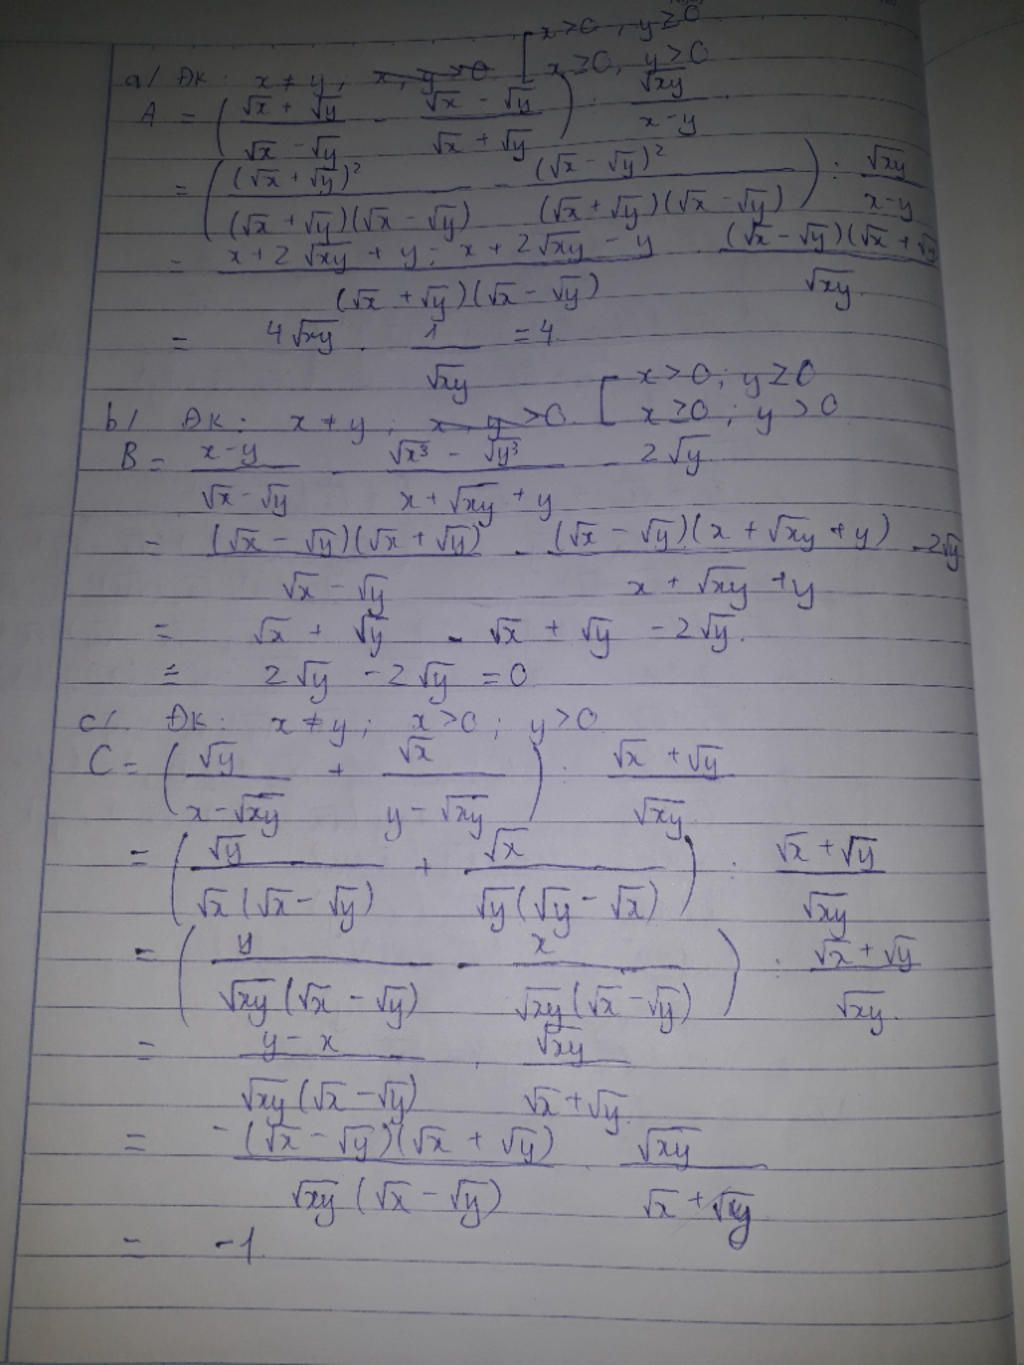 a/ ĐK: x ≠ y, x, y > 0 [ x > 0, y ≥ 0
x ≥ 0, y > 0
A = ( (√x + √y)/(√x - √y) - (√x - √y)/(√x + √y) ) : √xy/(x - y)
= ( (√x + √y)²/((√x + √y)(√x - √y)) - (√x - √y)²/((√x + √y)(√x - √y)) ) : √xy/(x - y)
= (x + 2√xy + y - x + 2√xy - y)/((√x + √y)(√x - √y)) . (√x - √y)(√x + √y)/√xy
= 4√xy . 1/√xy = 4
b/ ĐK: x ≠ y; x, y > 0 [ x > 0; y ≥ 0
x ≥ 0; y > 0
B = (x - y)/(√x - √y) - (√x³ - √y³)/(x + √xy + y) - 2√y
= (√x - √y)(√x + √y)/(√x - √y) - (√x - √y)(x + √xy + y)/(x + √xy + y) - 2√y
= √x + √y - √x + √y - 2√y.
= 2√y - 2√y = 0
c/. ĐK: x ≠ y; x > 0; y > 0
C = ( √y/(x - √xy) + √x/(y - √xy) ) : (√x + √y)/√xy
= ( √y/(√x(√x - √y)) + √x/(√y(√y - √x)) ) : (√x + √y)/√xy
= ( y/(√xy(√x - √y)) - x/(√xy(√x - √y)) ) : (√x + √y)/√xy.
= (y - x)/(√xy(√x - √y)) . √xy/(√x + √y)
= -(√x - √y)(√x + √y)/(√xy(√x - √y)) . √xy/(√x + √xy)
= -1.